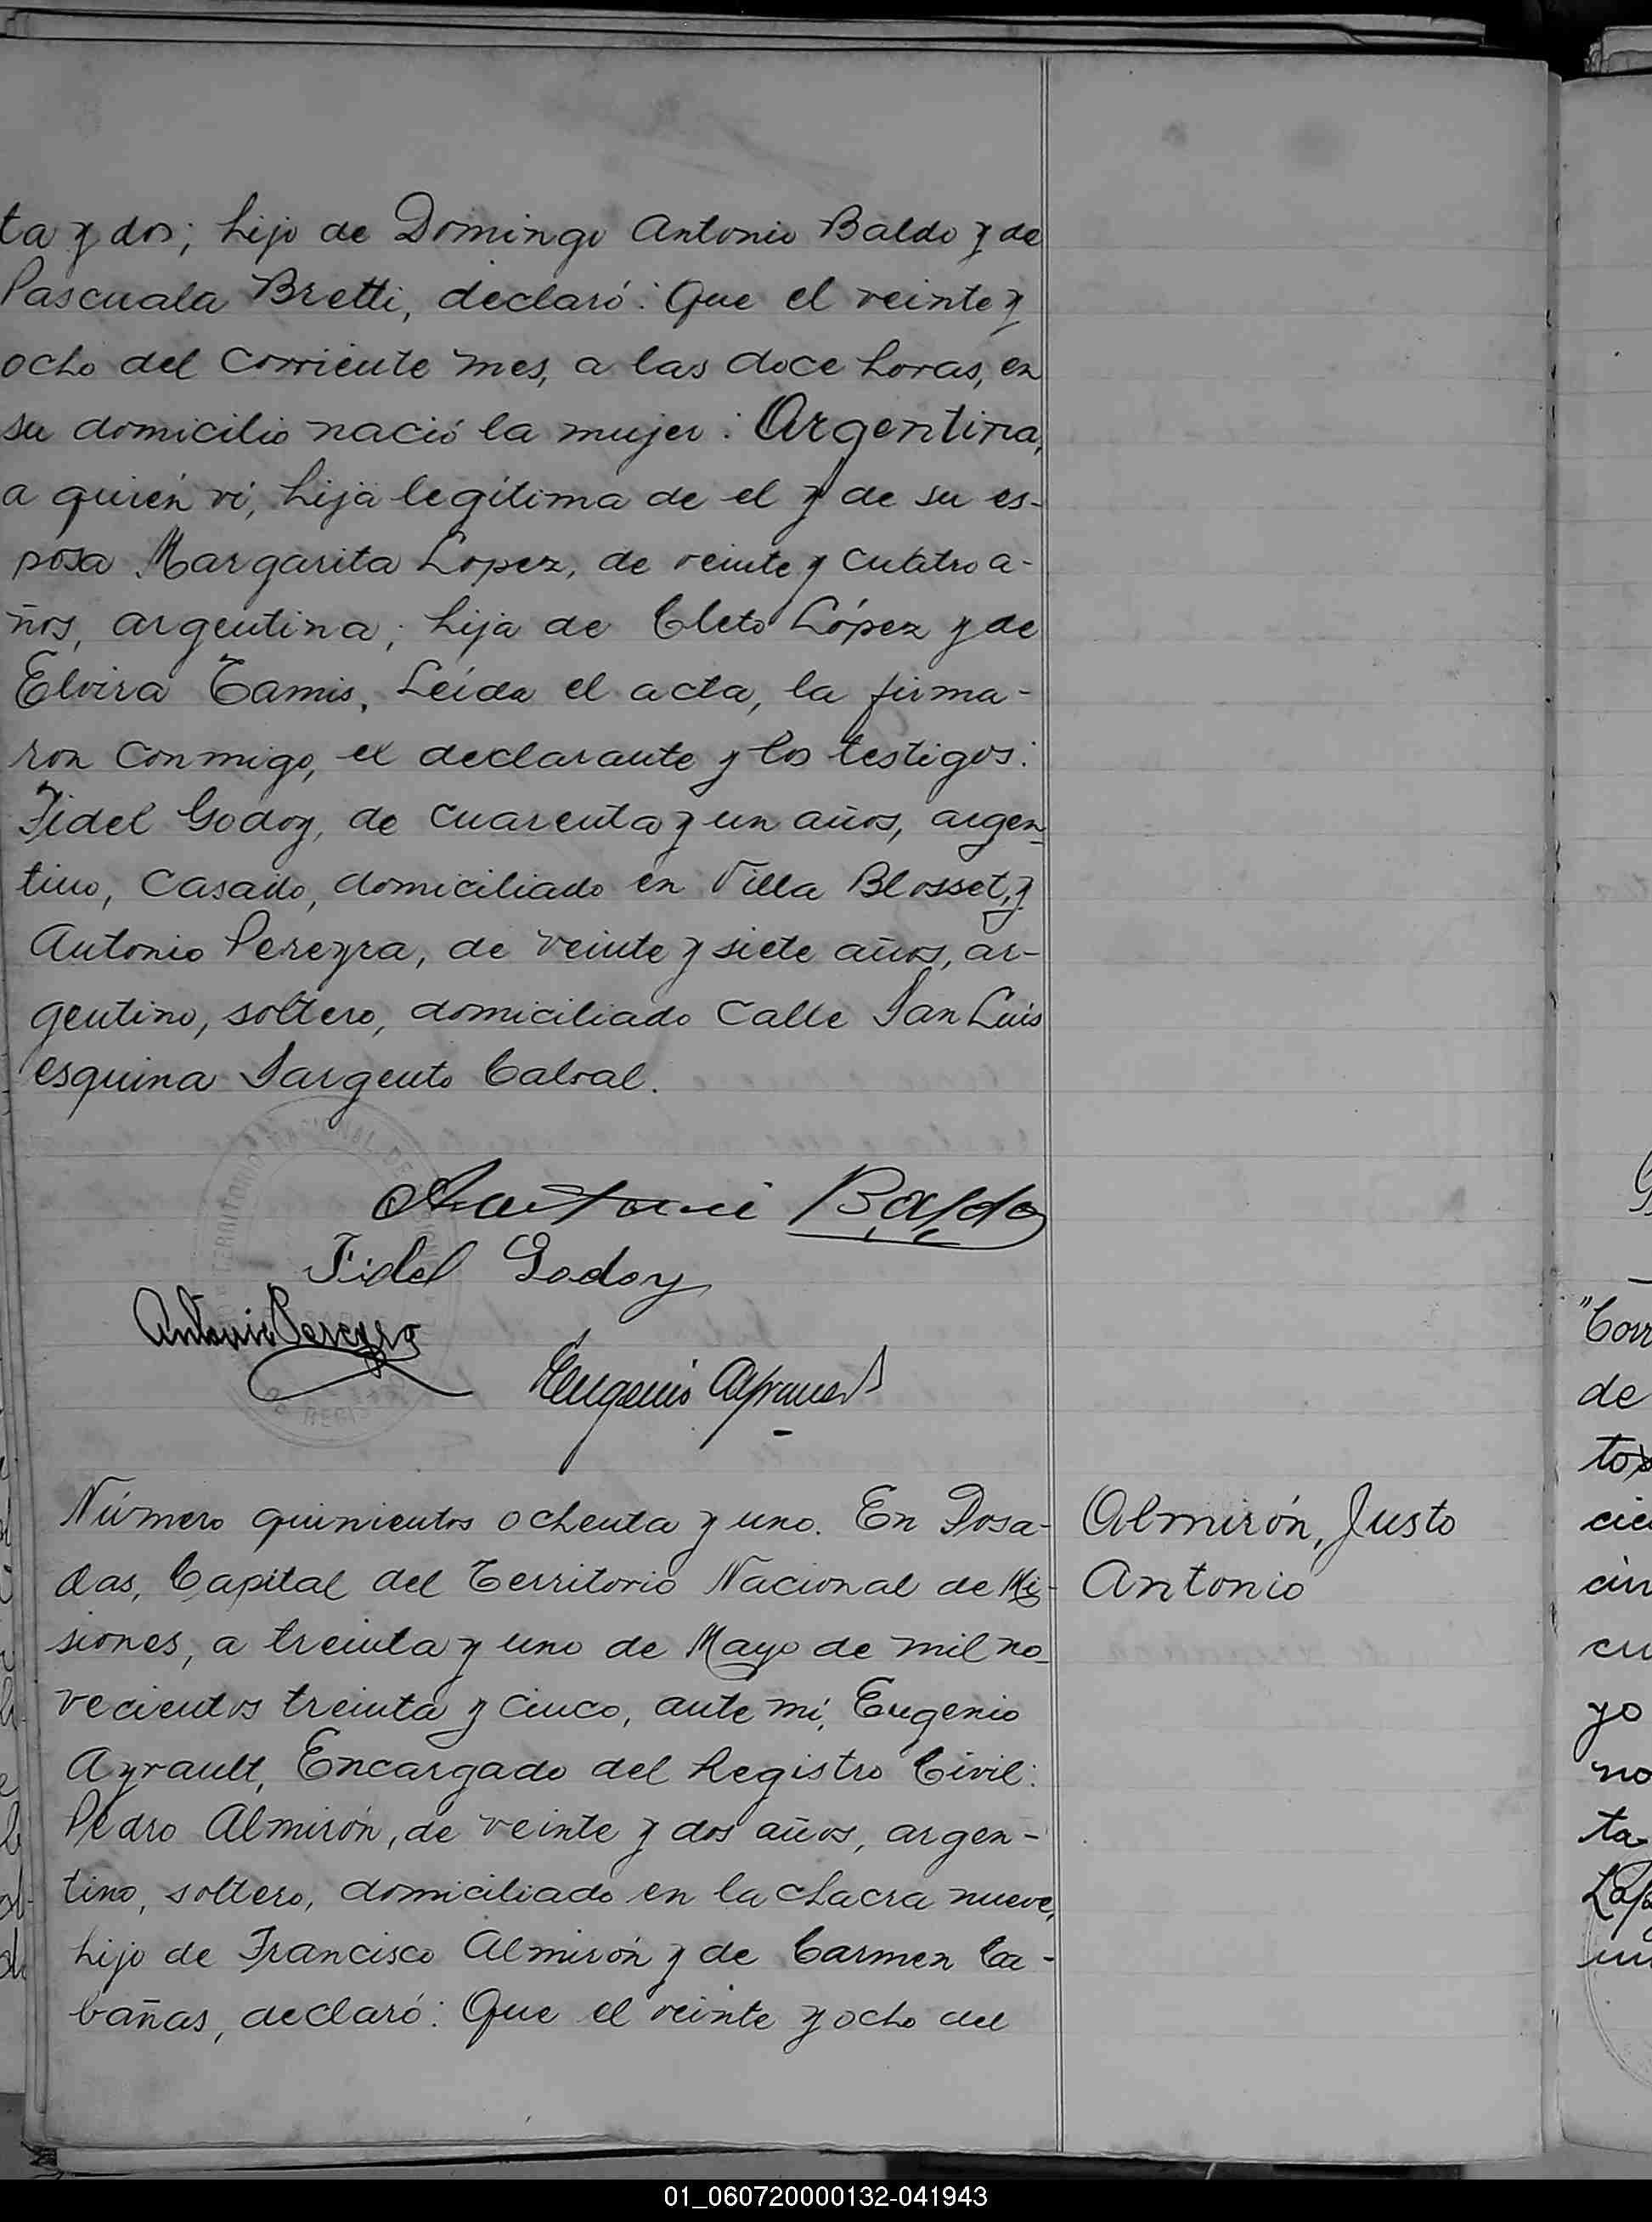 ta y dos; hijo de Domingo Antonio Baldo y de
Pascuala Bretti, declaró: Que el veinte y
ocho del corriente mes, a las doce horas, en
su domicilio nació la mujer: Argentina,
a quién ví, hija legítima de el y de su es-
posa Margarita Lopez, de veinte y cuatro a-
ños, argentina; hija de Cleto López y de
Elvira Tamis. Leída el acta, la firma-
ron conmigo, el declarante y los testigos:
Fidel Godoy, de cuarenta y un años, argen-
tino, casado, domiciliado en Villa Blosset, y
Antonio Pereyra, de veinte y siete años, ar-
gentino, soltero, domiciliado calle San Luis
esquina Sargento Cabral.
Antonio Baldo
Fidel Godoy
Antonio Pereyra
Eugenio Ayrault
Número quinientos ochenta y uno. En Posa-
das, Capital del Territorio Nacional de Mi-
siones, a treinta y uno de Mayo de mil no-
vecientos treinta y cinco, ante mí, Eugenio
Ayrault, Encargado del Registro Civil:
Pedro Almirón, de veinte y dos años, argen-
tino, soltero, domiciliado en la chacra nueve,
hijo de Francisco Almirón y de Carmen Ca-
bañas, declaró: Que el veinte y ocho del
Almirón, Justo
Antonio
"Corr
de
cin
cu
yo
no
ta
01_060720000132-041943